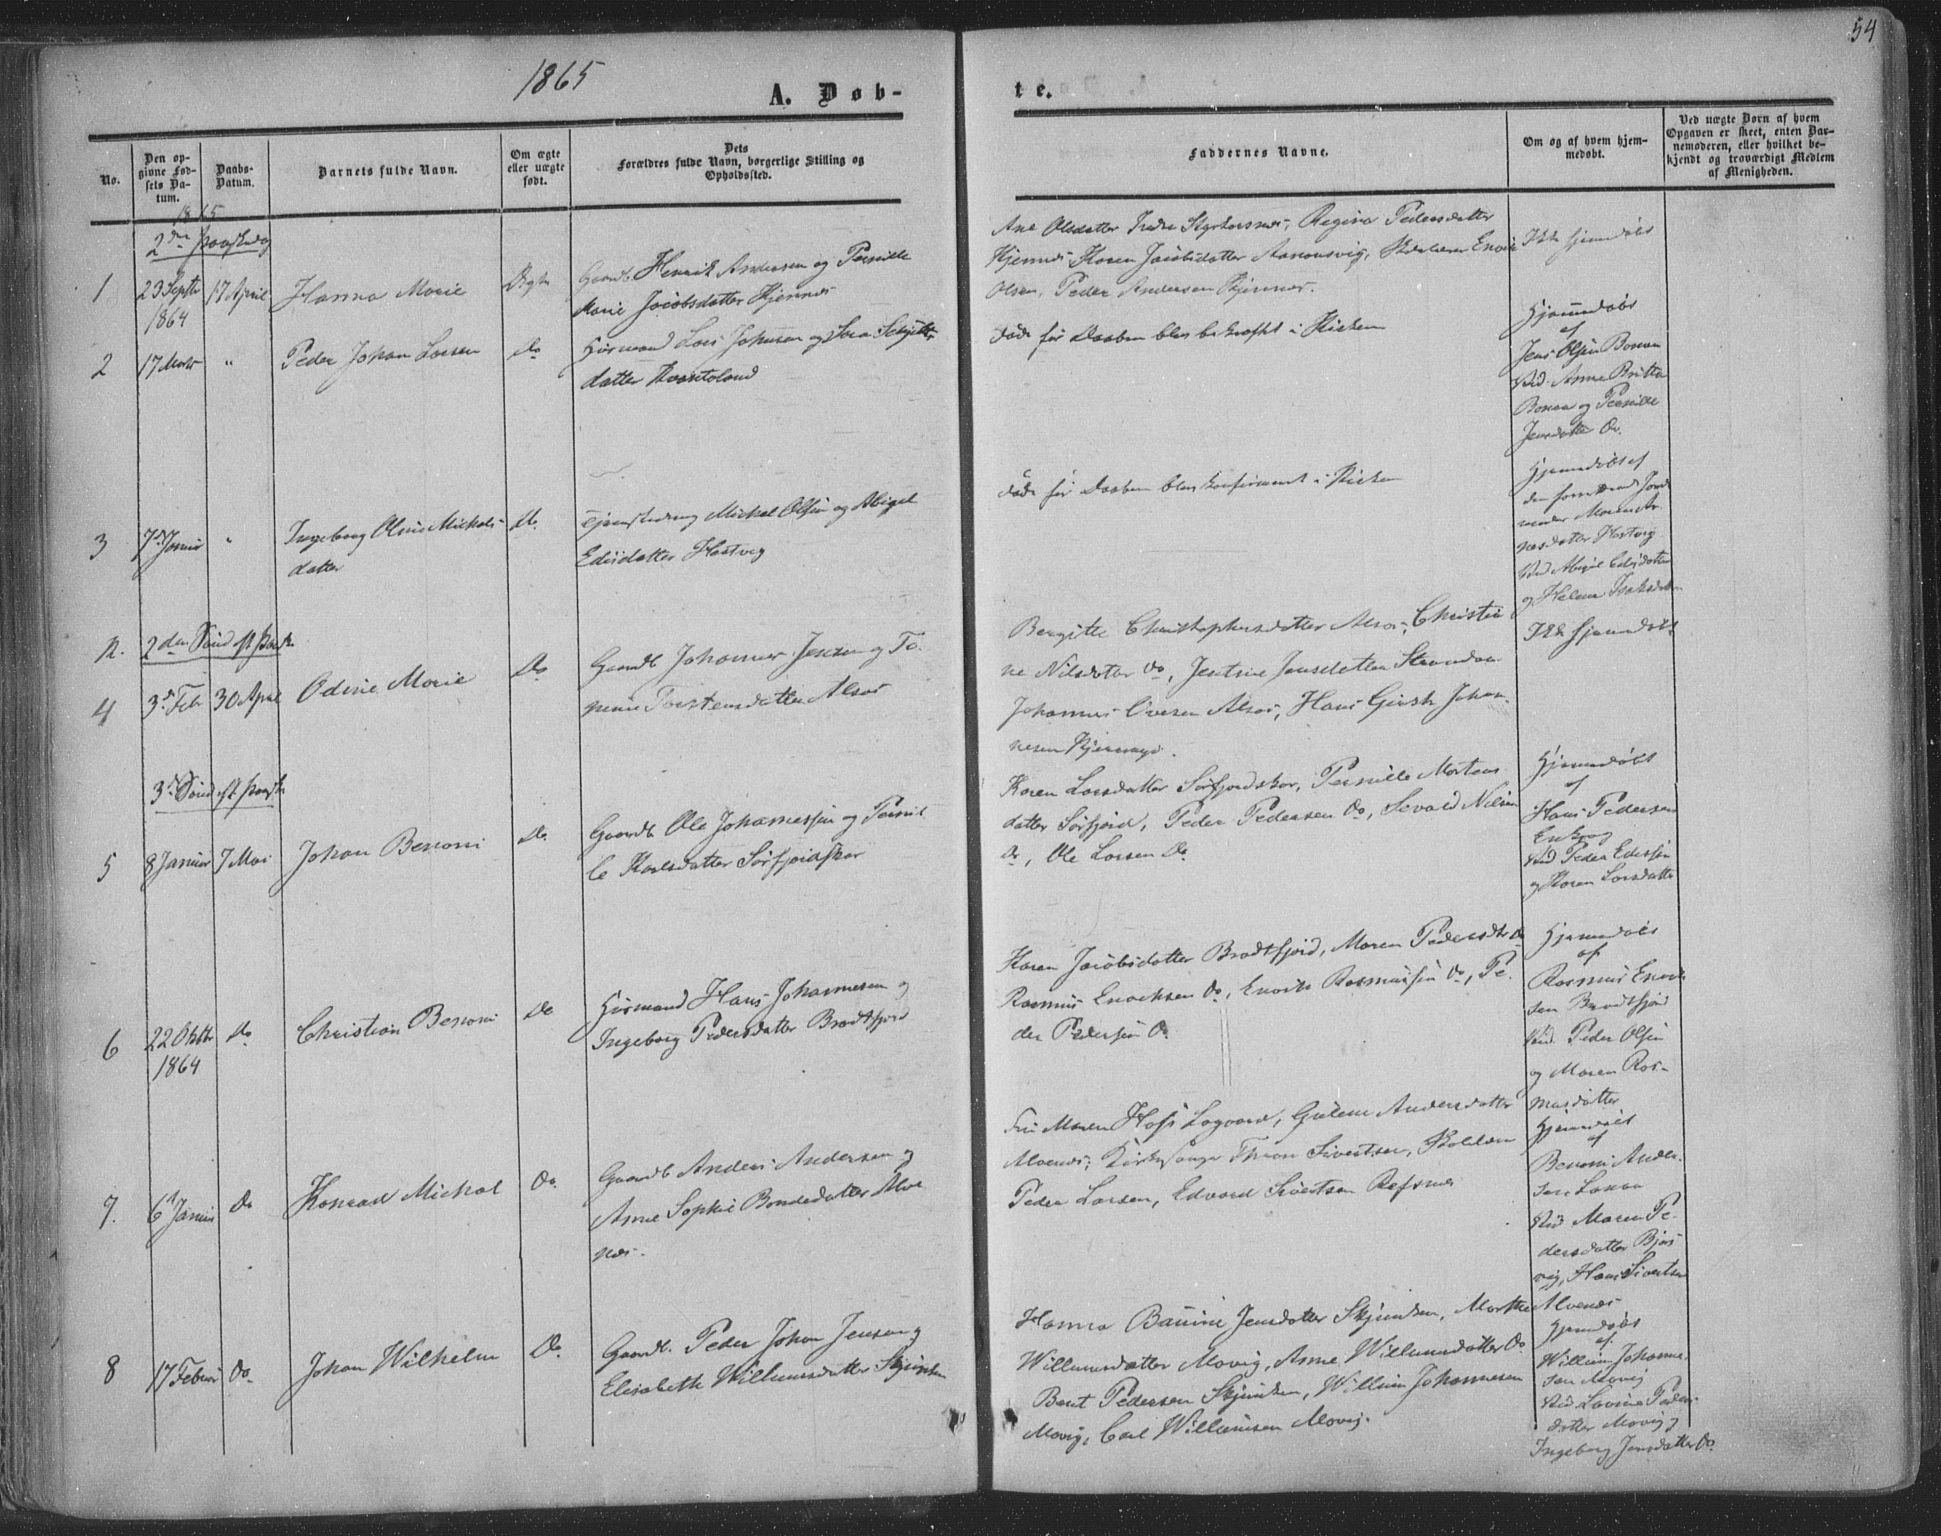 54
1865
A. Døb-
te.
No.
Den op-
givne Fød-
sels Da-
tum.
Daabs-
Datum.
Barnets fulde Navn.
Om ægte
eller uægte
født.
Dets
Forældres fulde Navn, borgerlige Stilling og
Opholdssted.
Faddernes Navne.
Om og af hvem hjem-
medøbt.
Ved uægte Børn af hvem
Opgaven er skeet, enten Bar-
nemoderen, eller hvilket be-
kjendt og troværdigt Medlem
af Menigheden.
1865
2den Paaskedag
1
23 Septbr
1864
17 April
Hanna Marie
Ægte
Gaardb. Henrik Andersen og Pernille
Marie Jacobsdatter Hjennes
Ane Olsdatter Indre Styrkersnes, Regina Pedersdatter
Hjennes Karen Jacobsdatter
Olsen, Peder Andersen Hjennes.
Ikke hjemdøbt
2
17 Marts
"
Peder Johan Larsen
Do
Huusmand Lars Johnsen og Sara
datter
død før Daaben blev bekræftet i Kirken
Hjemmdøbt
af
Jens Olsen Bonaa
Vid. Anne Britta
Bonaa og Pernille
Jensdatter Do.
3
7de Januar
"
Ingeborg Oline Mickels-
datter
Do.
Mickel Olsen og Abigel
Edisdatter Hestvig
død før Daaben blev konfirmeret i Kirken
Hjemmdøbt af
Hestvig
Vid Abigel Edisdatter
og Helena Isaksdatter
N.
2den Sønd eft Paaske
4
3die Febr
30 April
Odine Marie
Do
Gaardb Johannes Jensen og Te-
Torstensdatter Alsos
Bergitte Christophersdatter Alsos, Christi-
ne Nilsdatter Do, Jentine Jensdatter
Johannes Ovesen Alsos, Hans Gjert Johan-
nesen
Ikke hjemmdøbt
3die Sønd eft Paaske
5
8 Januar
7 Mai
Johan Benoni
Do.
Gaardb Ole Johannessen og Pernil-
le Karlsdatter Sørfjordskar
Karen Larsdatter Sørfjordskar, Pernille Mortens
datter Sørfjord, Peder Pedersen Do, Sevald Nilsen
Do, Ole Larsen Do.
Hjemmdøbt
af
Hans Pedersen
Vid Peder Edissen
og Karen Larsdatter
6
22 Oktbr
1864
Do
Christian Benoni
Do
Huusmand Hans Johannesen og
Ingeborg Pedersdatter Brodtfjord
Karen Jacobsdatter Brodtfjord, Maren Pedersdtr Do
Rasmus Enocksen Do, Enock Rasmussen Do, Pe-
der Pedersen Do.
Hjemmdøbt
af
Rasmus Enock-
sen Brodtfjord
Vid. Peder Olsen
og Maren Ras-
musdatter
7.
6te Januar
Do
Konrad Mickal
Do.
Gaardb Anders Andersen og
Anne Sophie Bendsdatter Alve-
nes.
Fru Maren Lagaard, Andersdatter
Alvenes, Kirkesanger Thron Sivertsen,
Peder Larsen, Edvard Sivertsen Refsnes
Hjemmdøbt
af
Benoni Ander-
sen
Vid Maren Pe-
dersdatter Bjørs-
vig, Hans Sivertsen
Alvenes
8
17 Februar
Do.
Johan Wilhelm
Do.
Gaardb. Peder Johan Jensen og
Elisabeth Willumsdatter
Hanna Jensdatter Marthe
Willumsdatter Movig, Anne Willumsdatter Do.
Bent Pedersen Willum Johannesen
Movig, Carl Willumsen Movig.
Hjemmdøbt
af
Willum Johanne-
sen Movig
Vid Lovine Peders-
datter Movig og
Ingeborg Jensdatter Do.